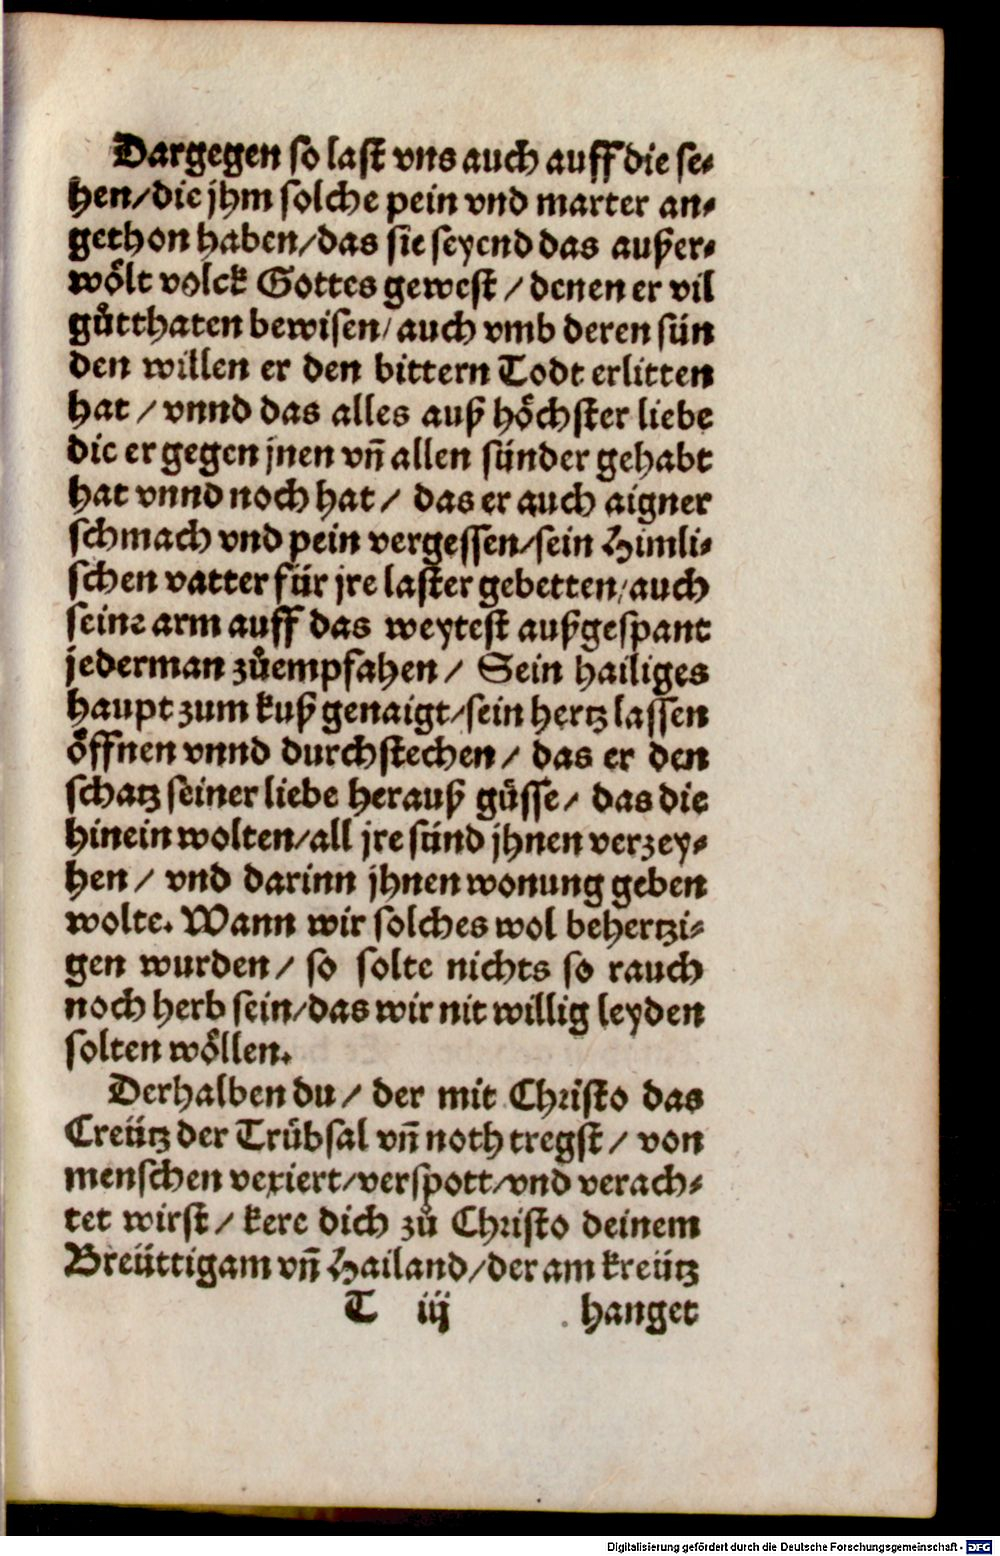 Dargegen so last vns auch auff die se⸗
hen/die jhm solche pein vnd marter an⸗
gethon haben/das sie seyend das außer⸗
woͤlt volck Gottes gewest / denen er vil
guͦtthaten bewisen/ auch vmb deren sün
den willen er den bittern Todt erlitten
hat / vnnd das alles auß hoͤchster liebe
die er gegen jnen vñ allen sünder gehabt
hat vnnd noch hat / das er auch aigner
schmach vnd pein vergessen/sein Himli⸗
schen vatter für jre laster gebetten/auch
seine arm auff das weytest außgespant
jederman zuͦempfahen / Sein hailiges
haupt zum kuß genaigt/sein hertz lassen
oͤffnen vnnd durchstechen / das er den
schatz seiner liebe herauß guͤsse / das die
hinein wolten/all jre sünd jhnen verzey⸗
hen / vnd darinn jhnen wonung geben
wolte. Wann wir solches wol behertzi⸗
gen wurden / so solte nichts so rauch
noch herb sein/das wir nit willig leyden
solten woͤllen.
Derhalben du / der mit Christo das
Creütz der Truͤbsal vñ noth tregst / von
menschen vexiert/verspott/vnd verach⸗
tet wirst / kere dich zuͦ Christo deinem
Breüttigam vñ Hailand/der am kreütz
T iij hanget
Digitalisierung gefördert durch die Deutsche Forschungsgemeinschaft - DFG